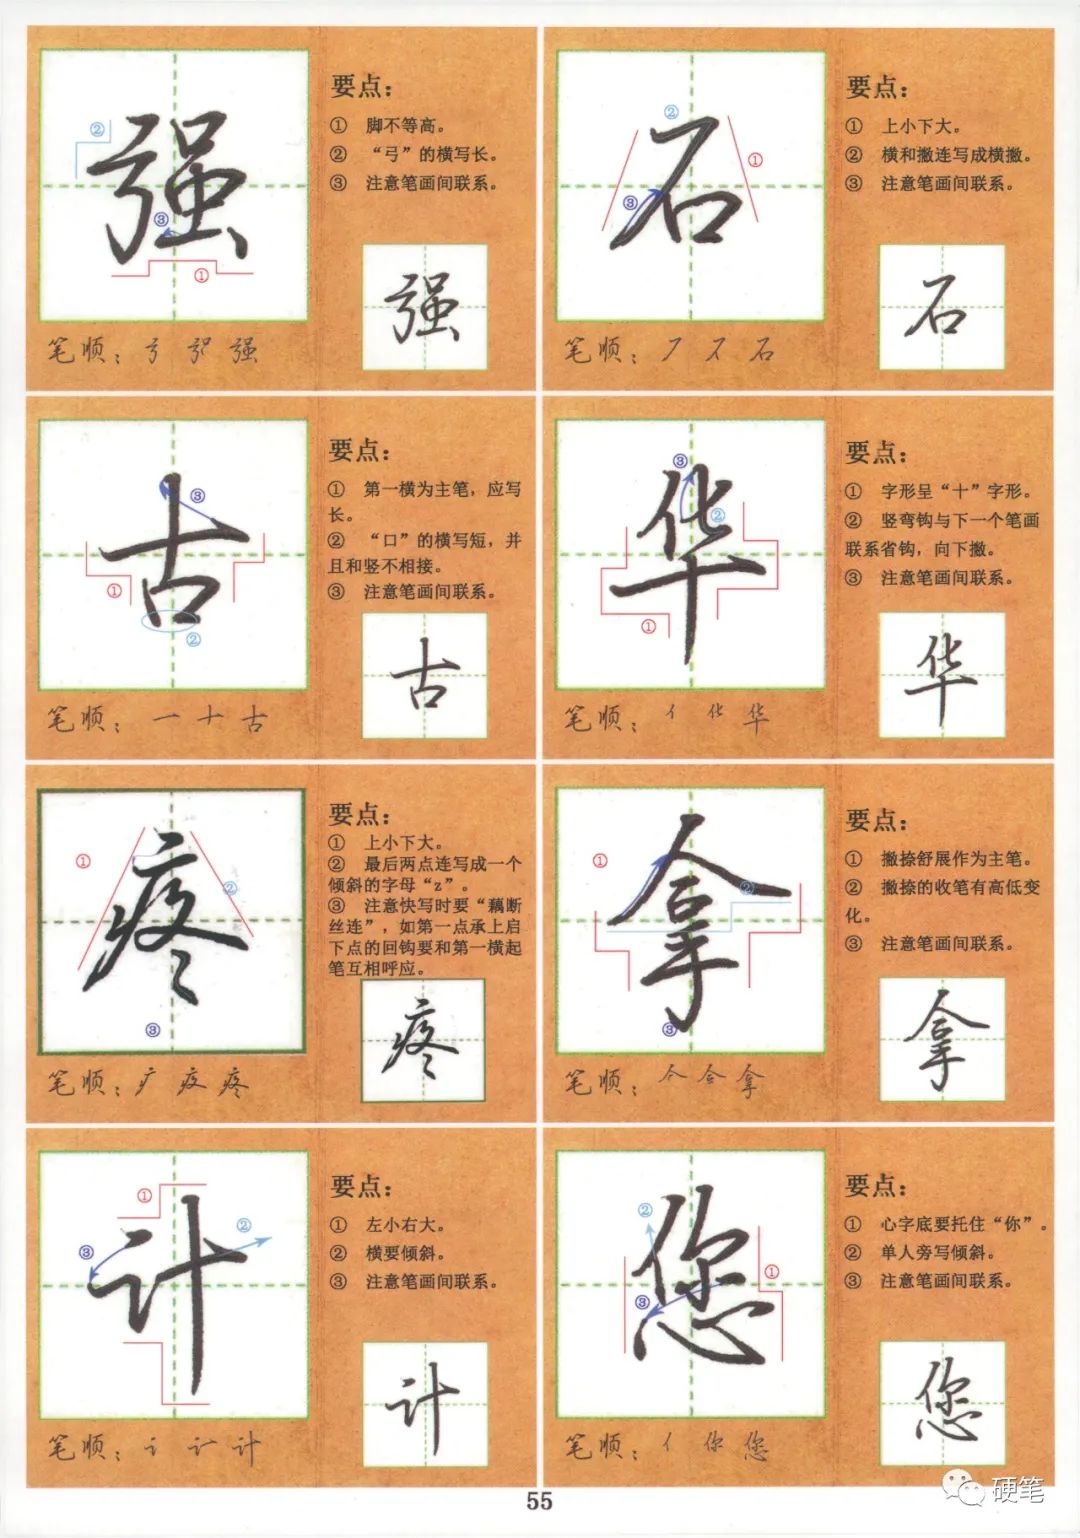 强
②
③
①
要点：
① 脚不等高。
② “弓”的横写长。
③ 注意笔画间联系。
强
笔顺：弓 强
石
②
①
③
要点：
① 上小下大。
② 横和撇连写成横撇。
③ 注意笔画间联系。
石
笔顺：石
古
③
①
②
要点：
① 第一横为主笔，应写
长。
② “口”的横写短，并
且和竖不相接。
③ 注意笔画间联系。
古
笔顺：一 十 古
华
③
②
①
要点：
① 字形呈“十”字形。
② 竖弯钩与下一个笔画
联系省钩，向下撇。
③ 注意笔画间联系。
华
笔顺：亻 化 华
疼
①
②
③
要点：
① 上小下大。
② 最后两点连写成一个
倾斜的字母“z”。
③ 注意快写时要“藕断
丝连”，如第一点承上启
下点的回钩要和第一横起
笔互相呼应。
疼
笔顺：疒 疼
拿
①
②
③
要点：
① 撇捺舒展作为主笔。
② 撇捺的收笔有高低变
化。
③ 注意笔画间联系。
拿
笔顺：亼 合 拿
计
①
②
③
要点：
① 左小右大。
② 横要倾斜。
③ 注意笔画间联系。
计
笔顺：讠 计
您
②
①
③
要点：
① 心字底要托住“你”。
② 单人旁写倾斜。
③ 注意笔画间联系。
您
笔顺：亻 你 您
硬笔
55